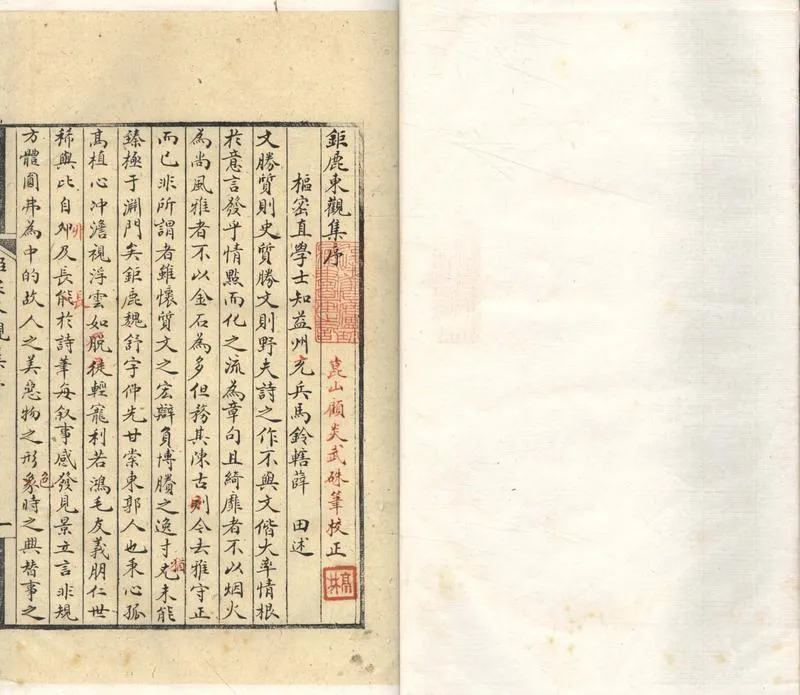 鉅鹿東觀集序
崑山顧炎武硃筆校正
樞密直學士知益州充兵馬鈐轄薛 田述
文勝質則史質勝文則野夫詩之作不與文偕大率情根
於意言發乎情點而化之流為章句且綺靡者不以烟火
為尚風雅者不以金石為多但務其陳古則今去雅守正
而已非所謂者雖懷質文之宏辯負博贍之逸才未能
猶
臻極于淵門矣鉅鹿魏舒字仲先甘棠東郭人也秉心孤
高植心冲澹視浮雲如脫屣輕寵利若鴻毛友義朋仁世
稀與比自及長能於詩筆每叙事感發見景立言非規
長
方體圓弗為中的故人之美惡物之形象時之興替事之
色